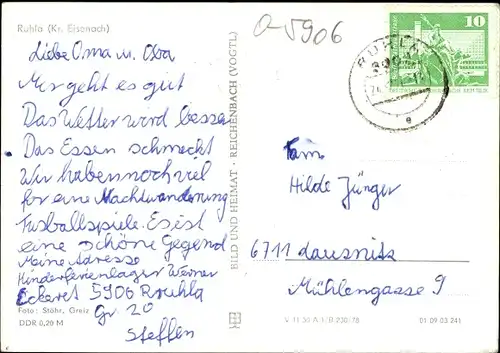 Ruhla (Kr. Eisenach)
Liebe Oma u. Opa
Mir geht es gut
Das Wetter wird besser
Das Essen schmeckt
Wir haben noch viel
for eine Nachtwanderung
Fusballspiele. Es ist
eine schöne Gegend
Meine Adresse
Kinderferienlager Werner
Eckeret 5906 Rouhla
Gr. 20
Steffen
Foto: Stöhr, Greiz
DDR 0,20 M
BILD UND HEIMAT · REICHENBACH (VOGTL)
5906
RUHLA
10
Fam
Hilde Jünger
6711 Lausnitz
Mühlengasse 9
V 11 50 A 1/B 230/78
01 09 03 241